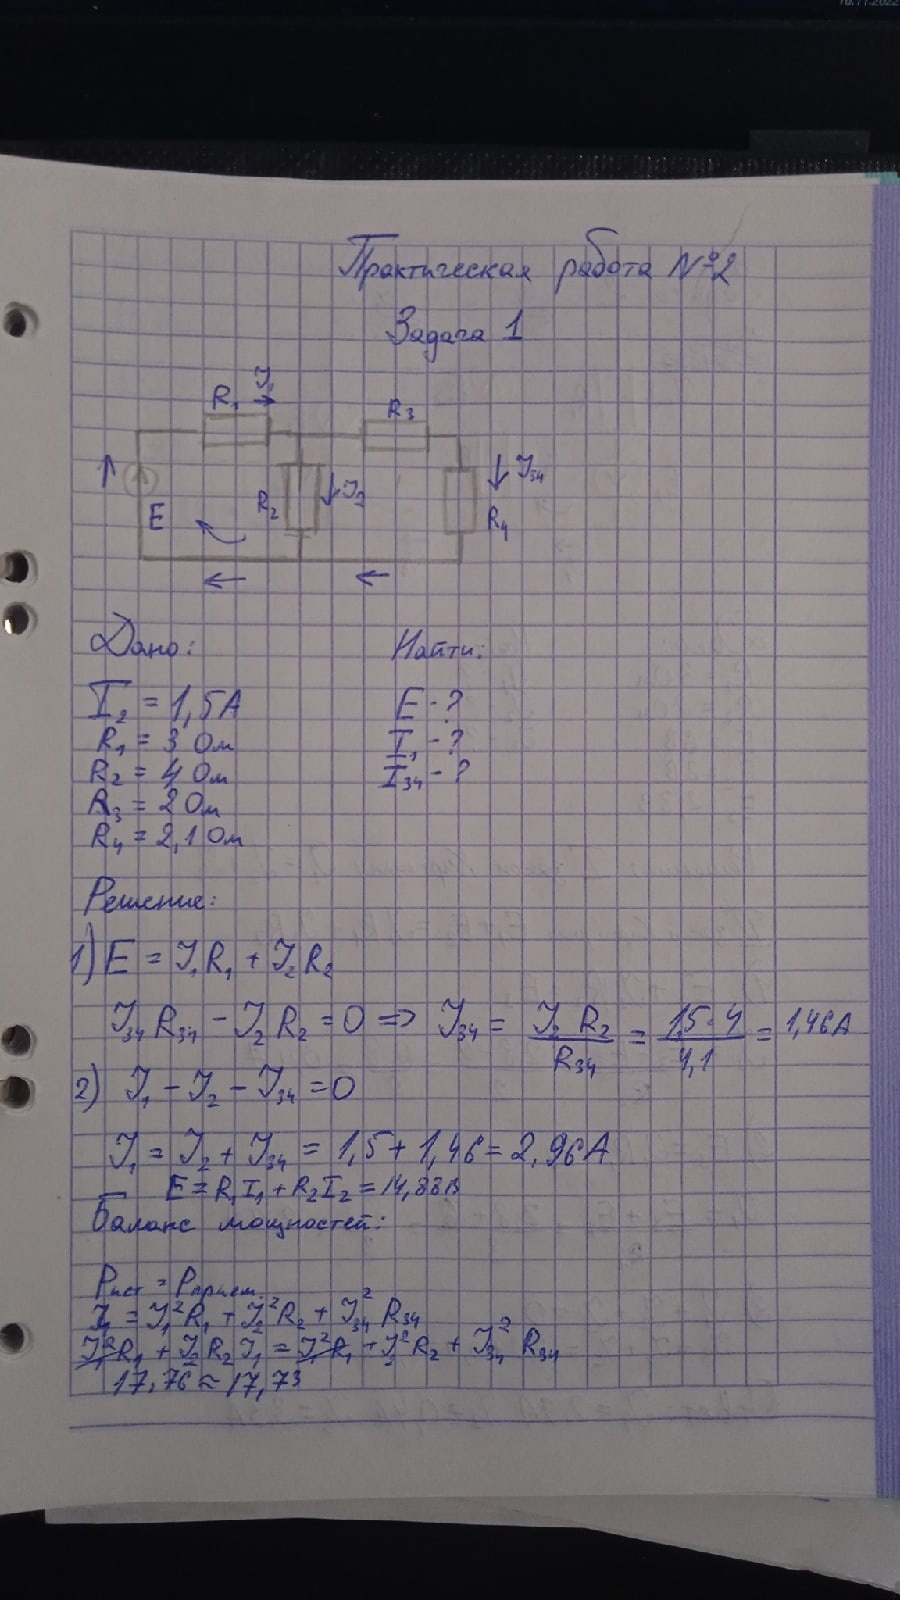 16.11.2022
Практическая работа №2
Задача 1
R1 I1 R3
E R2 I2 R4 I34
Дано: Найти:
I2 = 1,5А E - ?
R1 = 3 Ом I1 - ?
R2 = 4 Ом I34 - ?
R3 = 2 Ом
R4 = 2,1 Ом
Решение:
1) E = I1R1 + I2R2
I34R34 - I2R2 = 0 => I34 = I2 R2 / R34 = 1,5·4 / 4,1 = 1,46А
2) I1 - I2 - I34 = 0
I1 = I2 + I34 = 1,5 + 1,46 = 2,96А
E = R1I1 + R2I2 = 14,88В
Баланс мощностей:
Pист = Pприем.
= I1²R1 + I2²R2 + I34² R34
I1²R1 + I2R2I1 = I1²R1 + I2²R2 + I34² R34
17,76 ≈ 17,73